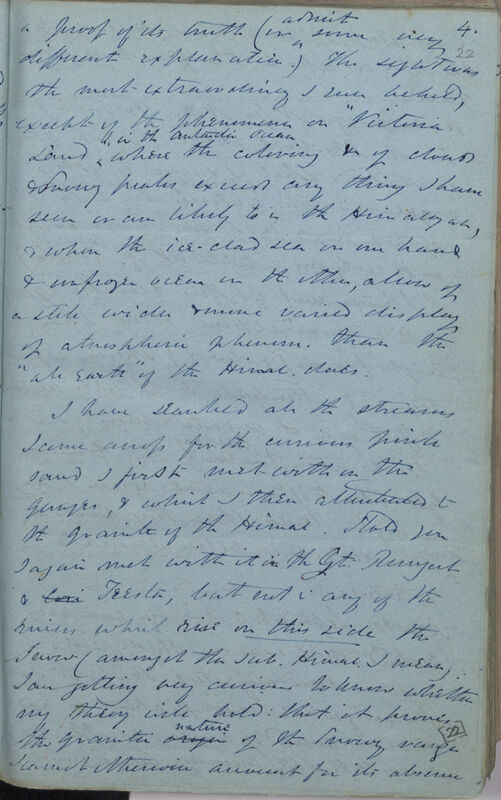 4.
22
a proof of its truth (or admit some very
different explanation.) The sight was
the most extraordinary I ever beheld,
except of the phenomena on "Victoria
Land", in the Antarctic Ocean where the coloring & of clouds
& snowy peaks exceed any thing I have
seen or am likely to in the Himalayah,
& when the ice-clad sea on one hand
& unfrozen ocean on the other, allow of
a still wider & more varied display
of atmospheric phenom. than the
"all Earth" of the Himal. does.
I have searched all the streams
I came across for the curious pink
sand I first met with in the
Ganges, & which I then attributed to
the granite of the Himal. I told you
I again met with it in the Gt. Rungeet
& Teesta, but not in any of the
rivers which rise on this side the
Snow (amongst the sub. Himal. I mean)
I am getting very curious to know whether
my theory will hold: that it proves
the granitic nature of the Snowy range
I cannot otherwise account for its absence
[22]